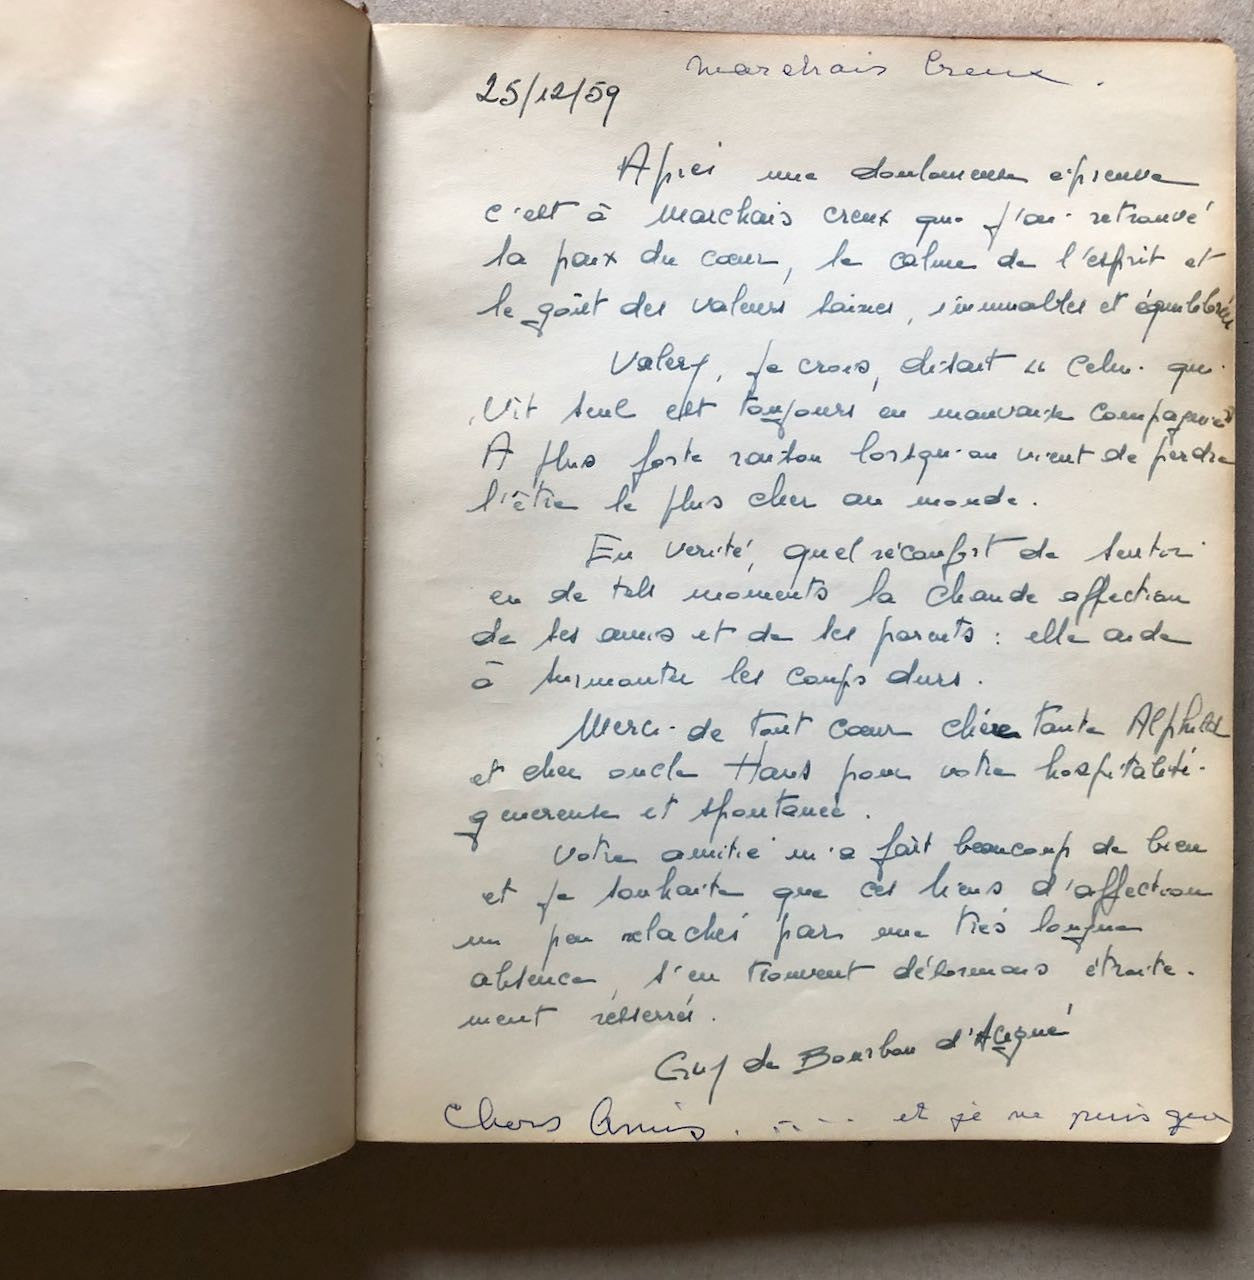 Marchais Creux.
25/12/59
Après une douloureuse épreuve
c'est à Marchais Creux que j'ai retrouvé
la paix du cœur, le calme de l'esprit et
le goût des valeurs saines, immuables et équilibrées
Valery, je crois, disait " Celui qui
Vit seul est toujours en mauvaise compagnie"
A plus forte raison lorsqu'on vient de perdre
l'être le plus cher au monde.
En verité, quel réconfort de sentir
en de tels moments la chaude affection
de ses amis et de ses parents : elle aide
à surmonter les coups durs.
Merci de tout cœur chère tante Alphild
et cher oncle Hans pour votre hospitalité
genereuse et spontanée.
Votre amitié m'a fait beaucoup de bien
et je souhaite que ces liens d'affection
un peu relachés par une très longue
absence, s'en trouvent désormais étroite-
ment résserrés.
Guy de Bourbon d'
Chers Amis. ..... et je ne puis que